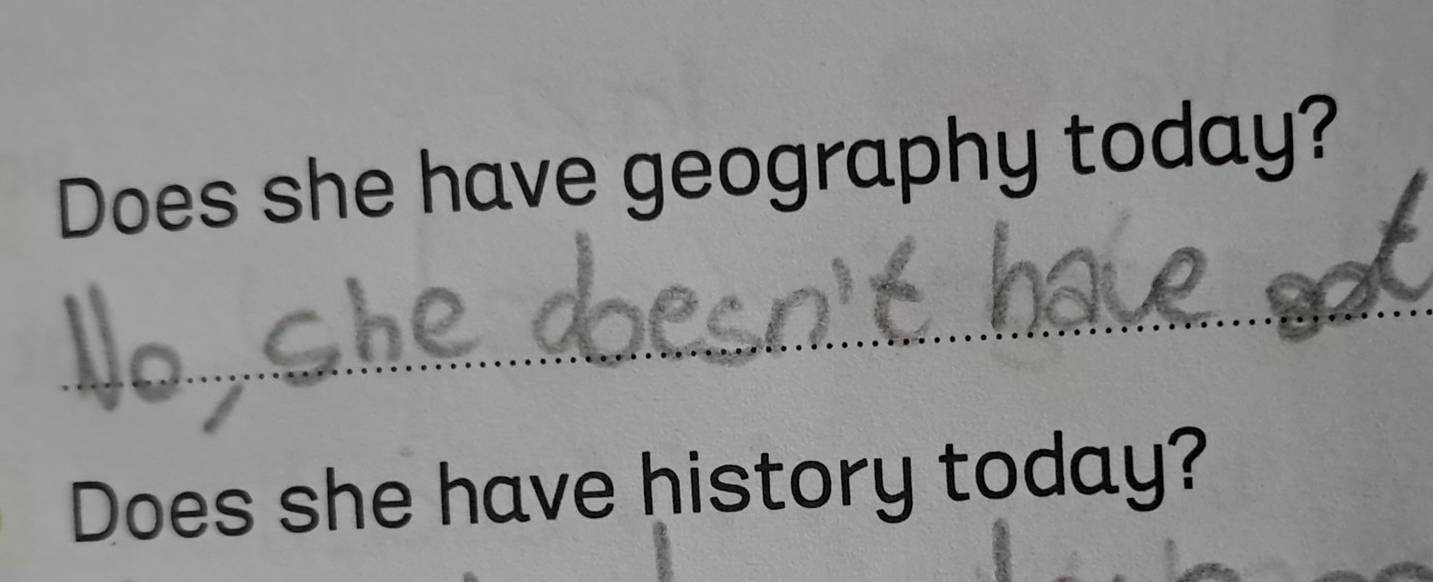 Does she have geography today?
No, she doesn't have got
Does she have history today?